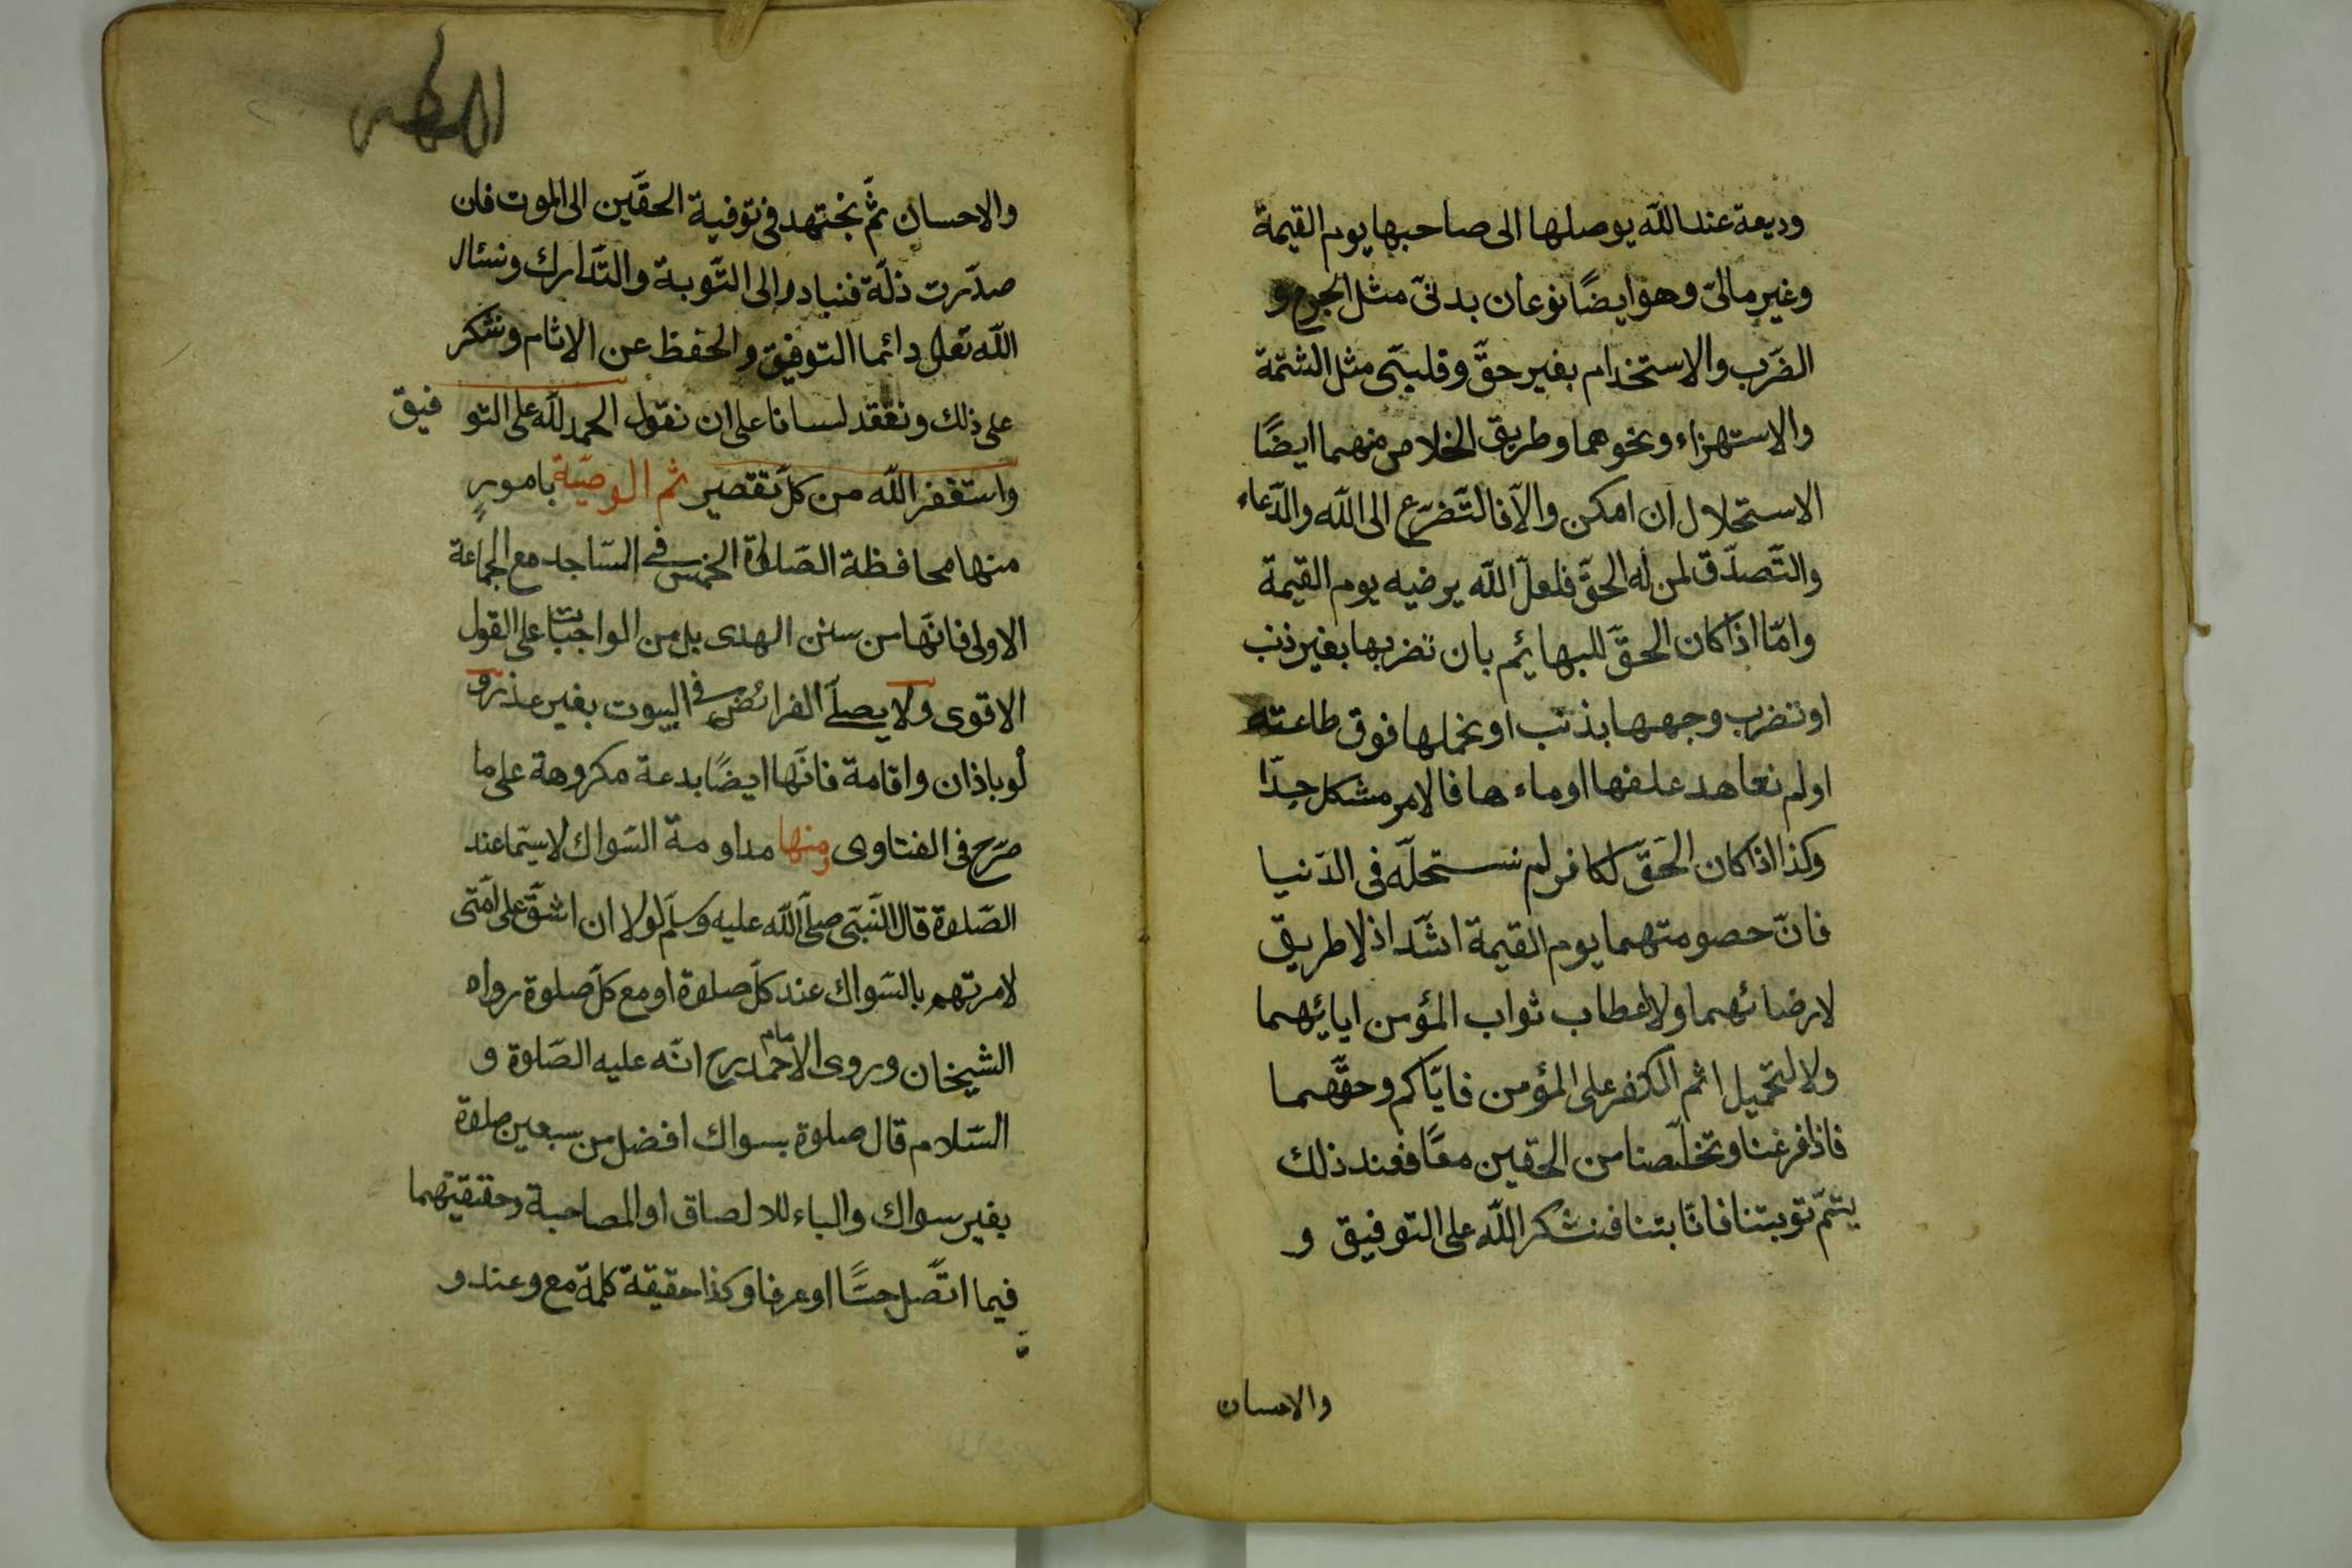 وديعة عند الله يوصلها الى صاحبها يوم القيمة
وغير مالىّ وهو ايضًا نوعان بدنىّ مثل الجرح و
الضّرب والاستخدام بغير حقّ وقلبىّ مثل الشتمة
والاستهزاء ونحوهما وطريق الخلاص منهما ايضًا
الاستحلال ان امكن والاّ فالتّضرّع الى الله والدّعاء
والتّصدّق لمن له الحقّ فلعلّ الله يرضيه يوم القيمة
وامّا اذا كان الحقّ للبهائم بان نضربها بغير ذنب
او نضرب وجهها بذنب او نحملها فوق طاعته
او لم نعاهد علفها او ماءها فالامر مشكل جدّا
وكذا اذا كان الحقّ لكافر لم نستحلّه فى الدّنيا
فانّ حصومتهما يوم القيمة اشدّ اذ لا طريق
لارضائهما ولا لاعطاب ثواب المؤمن اياهما
ولا لتحميل اثم الكفر على المؤمن فايّاكم وحقّهما
فاذا فرغنا وتخلّصنا من الحقين معًا فعند ذلك
يتمّ توبتنا فاذا تبنا فنشكر الله على التوفيق و
والاحسان
والاحسان ثمّ نجتهد فى توفية الحقّين الى الموت فان
صدّرت ذلّة فنبادر الى التّوبة والتّدارك ونسئال
الله تعلى دائما التوفيق والحفظ عن الاثام ونشكر
على ذلك ونعقد لسانا على ان نقول الحمد لله على التوفيق
واستغفر الله من كلّ تقصير ثم الوصيّة بامورٍ
منها محافظة الصّلوة الخمس فى المساجد مع الجماعة
الاولى فانّها من سنن الهدى بل من الواجبات على القول
الاقوى ولا يصلّى الفرائض فى البيوت بغير عذر و
لو باذان واقامة فانّها ايضًا بدعة مكروهة على ما
صرّح فى الفتاوى ومنها مداومة السّواك لاسيّما عند
الصّلوة قال النّبىّ صلّى الله عليه وسلّم لولا ان اشقّ على امّتى
لامرتهم بالسّواك عند كلّ صلوة او مع كلّ صلوة رواه
الشيخان وروى الامام احمد رح انّه عليه الصّلوة و
السّلام قال صلوة بسواك افضل من سبعين صلوة
بغير سواك والباء للالصاق او المصاحبة وحقيقتهما
فيما اتّصل حسًّا او عرفا وكذا حقيقة كلمة مع وعند و